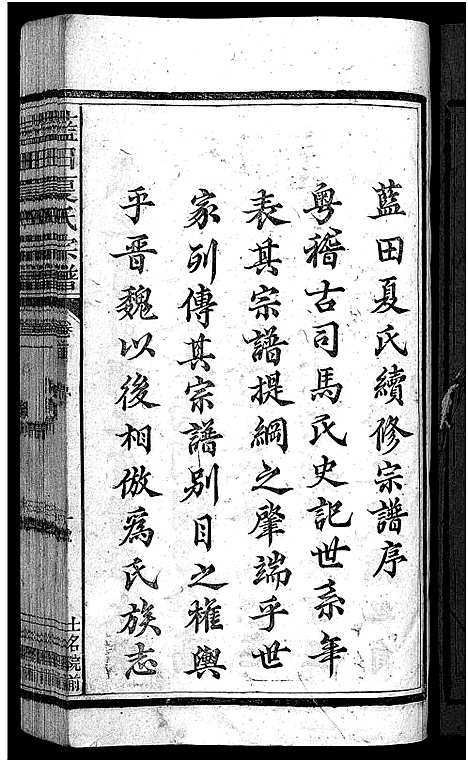 藍田夏氏續修宗譜序
粵稽古司馬氏史記世系年
表其宗譜提綱之肇端乎世
家列傳其宗譜別目之權輿
乎晉魏以後相倣爲氏族志
藍田夏氏宗譜
卷首
土名院前